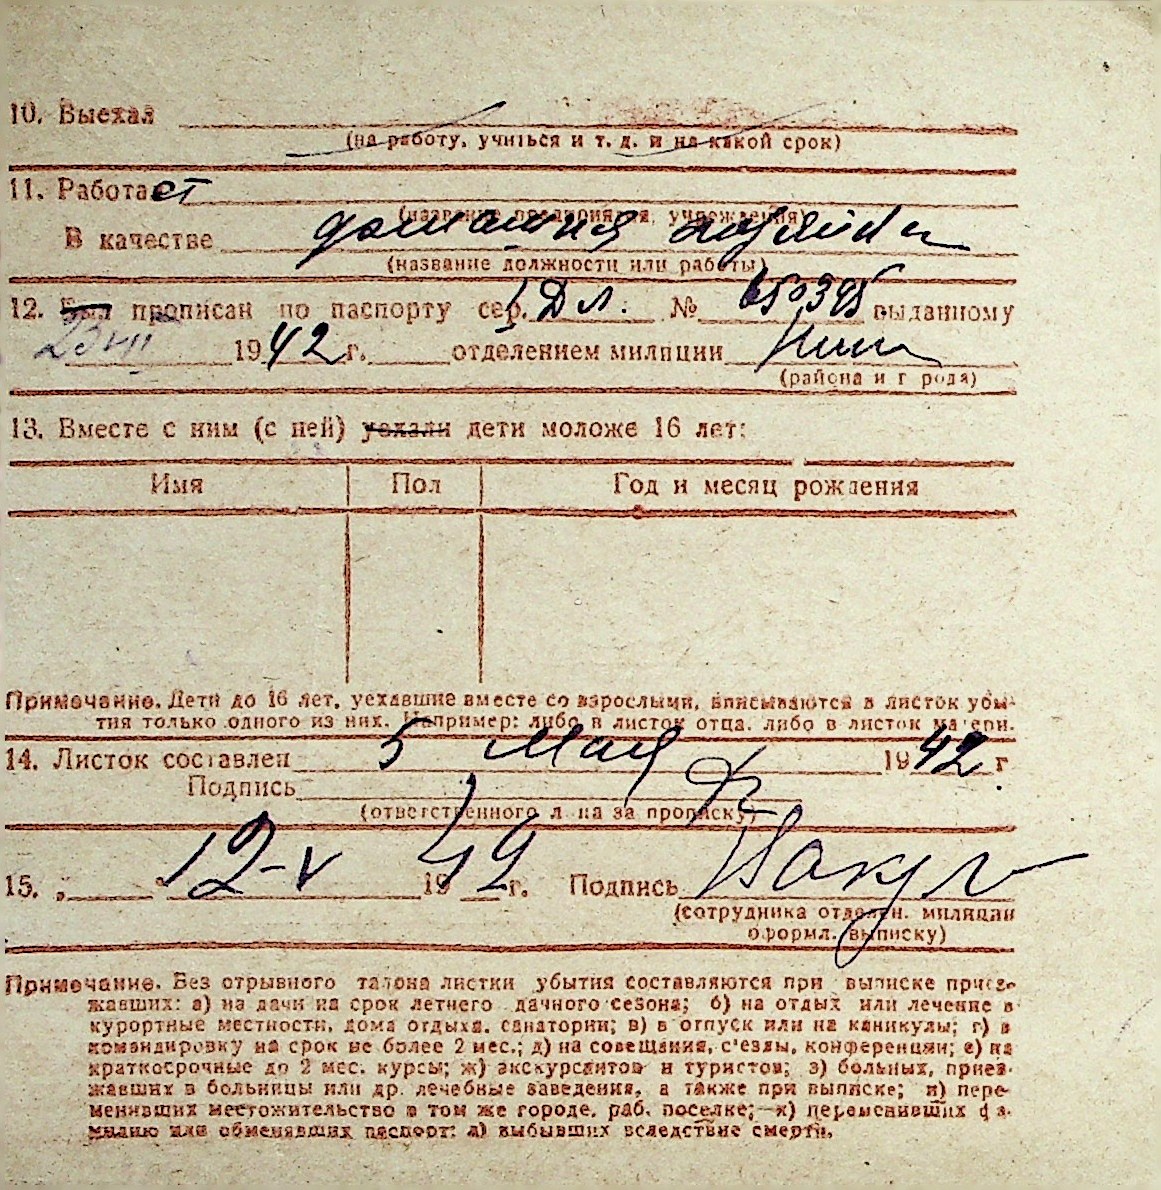 10. Выехал
(на работу, учиться и т. д. и на какой срок)
11. Работает
(название предприятия, учреждения)
В качестве домашняя хозяйка
(название должности или работы)
12. Был прописан по паспорту сер. I Дл. № 650395 выданному
23 VII 1942 г. отделением милиции
(района и города)
13. Вместе с ним (с ней) уехали дети моложе 16 лет:
Имя Пол Год и месяц рождения
Примечание. Дети до 16 лет, уехавшие вместе со взрослыми, вписываются в листок убы-
тия только одного из них. Например: либо в листок отца, либо в листок матери.
14. Листок составлен 5 Мая 1942 г
Подпись
(ответственного лица за прописку)
15. „ 12-V 1942 г. Подпись
(сотрудника отделен. милиции
оформл. выписку)
Примечание. Без отрывного талона листки убытия составляются при выписке приез-
жавших: а) на дачи на срок летнего дачного сезона; б) на отдых или лечение в
курортные местности, дома отдыха, санатории; в) в отпуск или на каникулы; г) в
командировку на срок не более 2 мес.; д) на совещания, с'езды, конференции; е) на
краткосрочные до 2 мес. курсы; ж) экскурсантов и туристов; з) больных, приез-
жавших в больницы или др. лечебные заведения, а также при выписке; и) пере-
менивших местожительство в том же городе, раб. поселке; к) переменивших фа-
милию или обменявших паспорт; л) выбывших вследствие смерти.